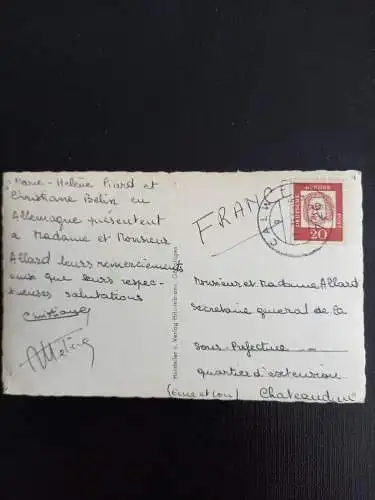 Marie-Helène Piard et
Christiane Belin en
Allemagne présentent
a Madame et Monsieur
Allard leurs remerciements
ainsi que leurs respec-
tueuses salutations
Christiane
FRANCE
CALW
DEUTSCHE
POST
20
Monsieur et Madame Allard
Secretaire general de la
Sous-Préfecture
quartier d'extension
(Eure et Loir) Chateaudun